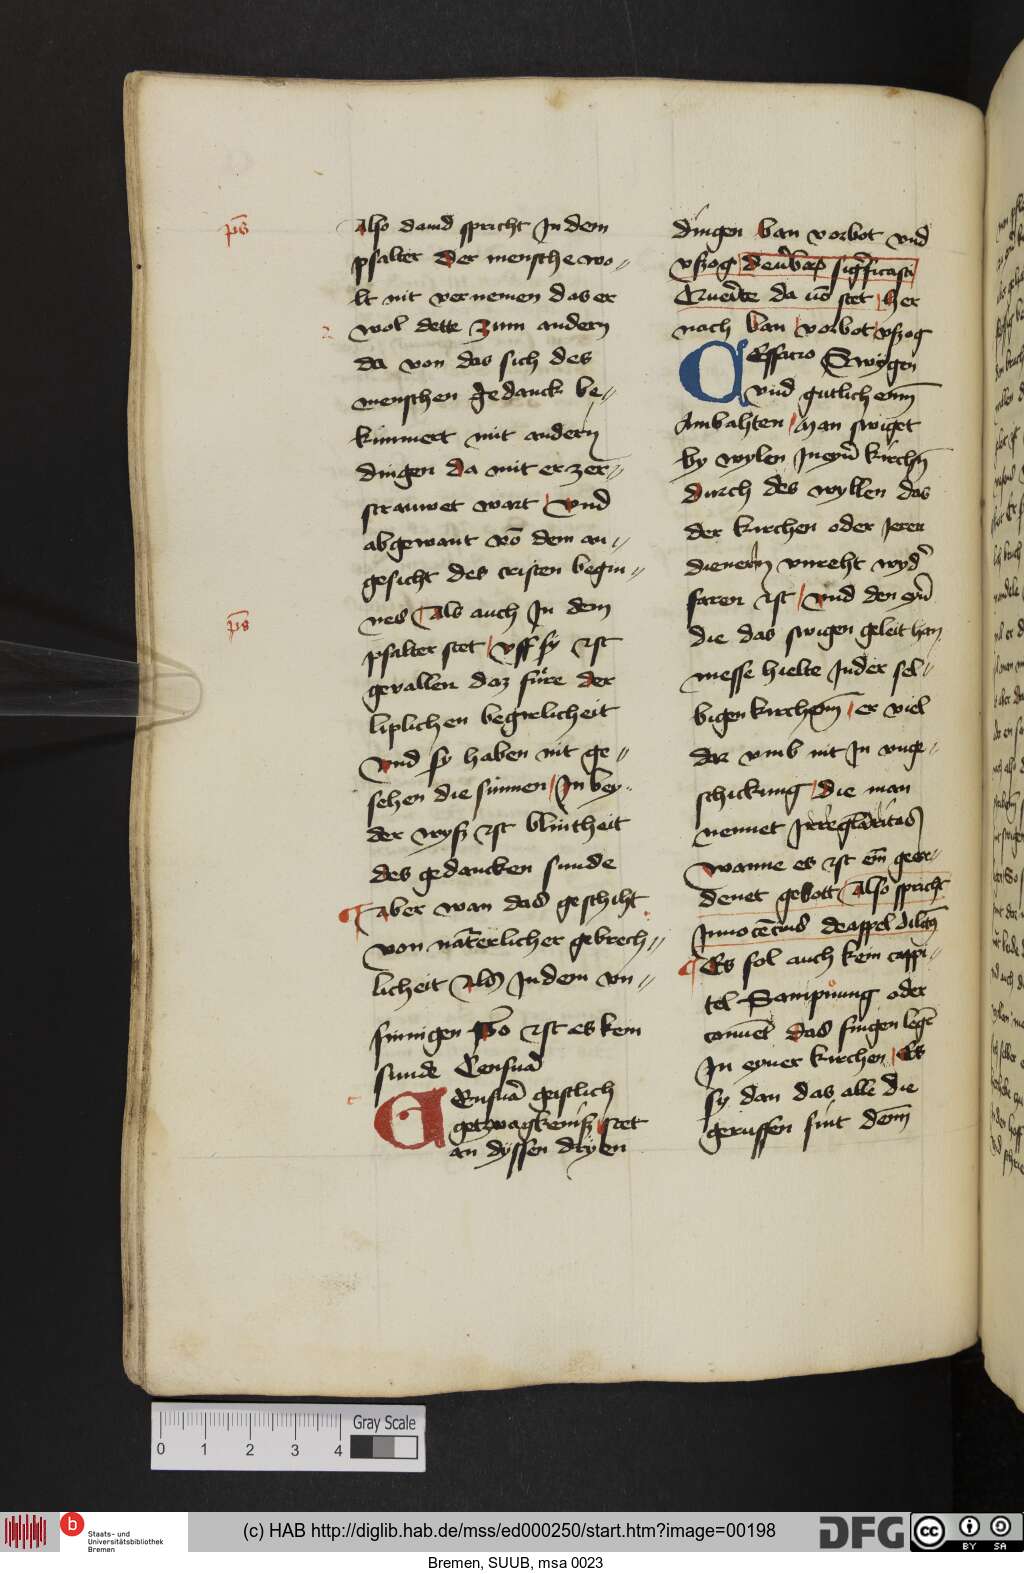 ps̄
Also dauid spricht Jn dem
psalter Der mensche wo⸗
lt nit vernemen das er
wol dette Zum andern
da von das sich des
menschen gedanck be⸗
kümmert mit andern
dingen da mit er zer⸗
strauwet wart vnd
abgewant vō dem an⸗
gesicht des cristen begin⸗
nes Als auch Jn dem
ps̄
psalter stet vff sy ist
geuallen daz füre der
liplichen begirlicheit
vnd sy haben nit ge⸗
sehen die sunnen Jn bey⸗
der wysz ist blintheit
des gedancken sunde
Aber wan das geschiht
von näterlicher gebrech⸗
licheit Als Jn dem vn⸗
sinnigen So ist es kein
sunde Censura
CEnsura geistlich
stet
an dyssen dryen
dingen ban vorbot vnd
vszog de verborum significasti
Querenti da vō stet her
nach ban vorbot vszog
CEssatio Swygen
vnd gutlichenn
Ambahten Man swiget
by wylen Jn eyner kirchen
durch des wyllen das
der kirchen oder Jeren
dienern vnreht wyder
faren ist vnd den eyner
die das swigen geleit han
messe hielte Jn der sel⸗
bigen kirchenn er viel
dar vmb nit Jn vnge⸗
schickung die man
nennet Jrregularitas
wanne es ist ein geor⸗
denet gebott Also spricht
Innocencius de appel dilecto
Es sol auch kein cappi⸗
tel Sampnung oder
conuent das singen legen
Jn eyner kirchen Es
sy dan das alle die
geruffen sint denn
Gray Scale
0 1 2 3 4
Staats- und
Universitätsbibliothek
Bremen
(c) HAB http://diglib.hab.de/mss/ed000250/start.htm?image=00198
DFG
cc BY SA
Bremen, SUUB, msa 0023